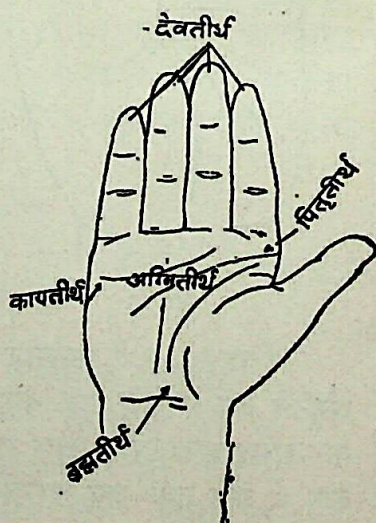 -देवतीर्थ
पितृतीर्थ
कायतीर्थ
अग्नितीर्थ
ब्रह्मतीर्थ